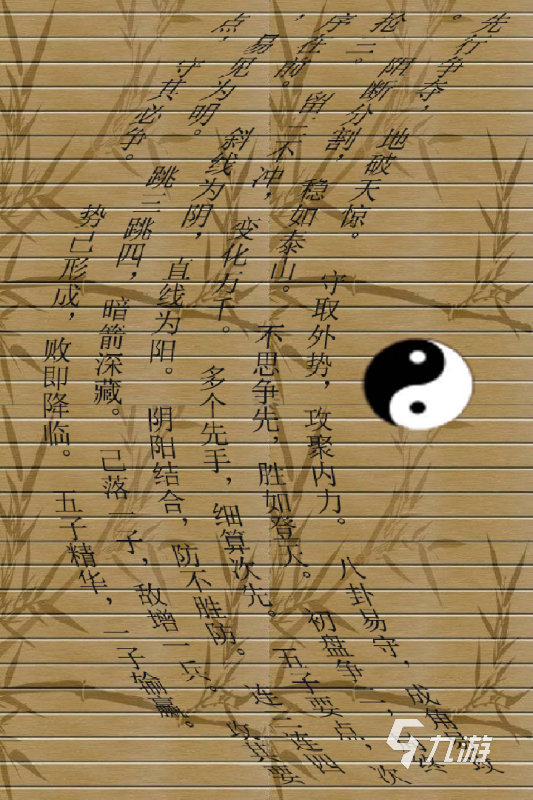 先行争夺，地破天惊。守取外势，攻聚内力。八卦易守，成角易攻
。阻断分割，稳如泰山。不思争先，胜如登天。初盘争二，
抢三。留三不冲，变化万千。多个先手，细算次先。五子要点，次
序在前。斜线为阴，直线为阳。阴阳结合，防不胜防。连三连四
，易见为明。跳三跳四，暗箭深藏。己落一子，敌增一兵。攻其要
点，守其必争。势己形成，败即降临。五子精华，一子输赢。
九游